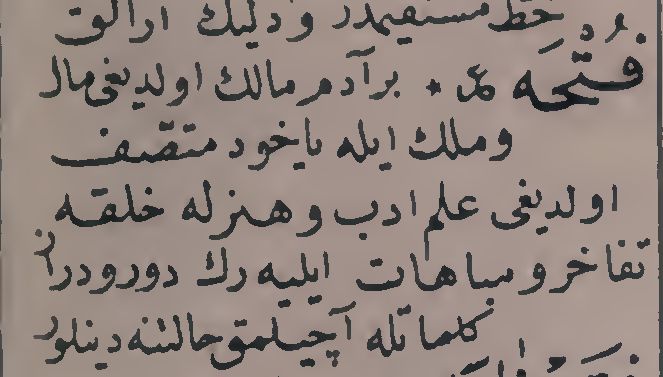 خط مستقیمدر ودلیك ارالق
فُتْحَه عر * برآدم مالك اولدیغی مال
وملك ایله یاخود متصف
اولدیغی علم ادب وهنرله خلقه
تفاخر ومباهات ایلیه رك دورودراز
كلماتله آچیلمق حالتنه دینلور